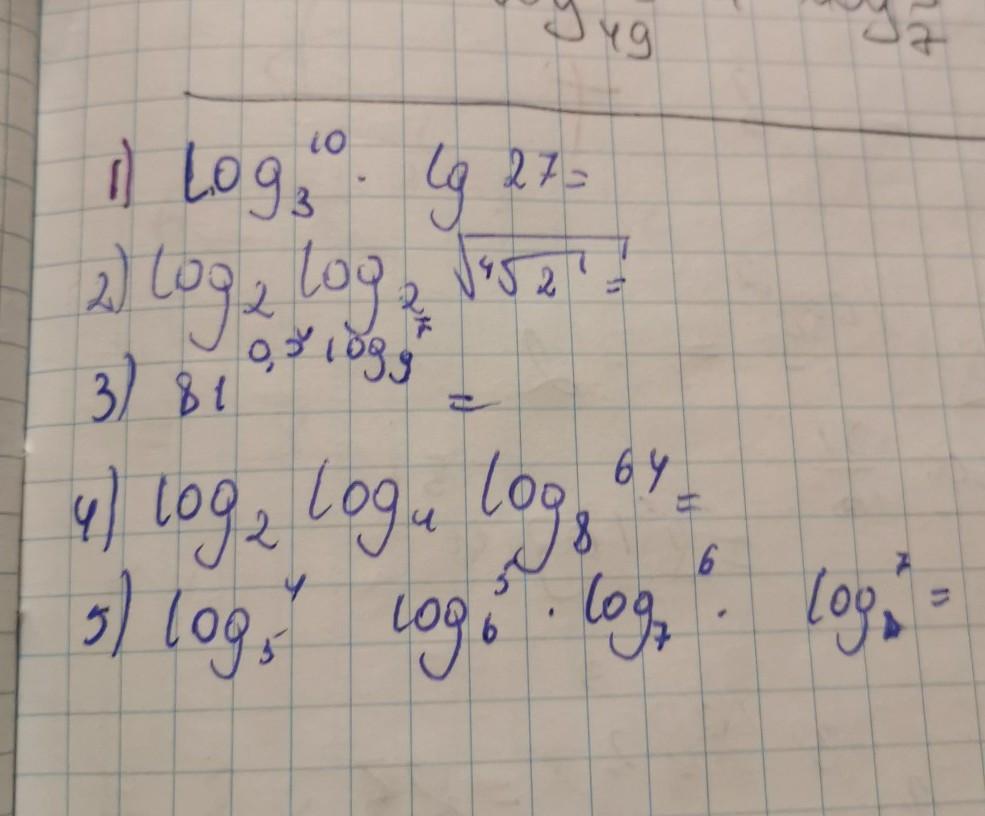 49 7
1) log₃ 10 · lg 27 =
2) log₂ log₂ √⁴√2 =
3) 81 log₉ 7 =
4) log₂ log₄ log₈ 64 =
5) log₅ 4 log₆ 5 · log₇ 6 · log 7 =